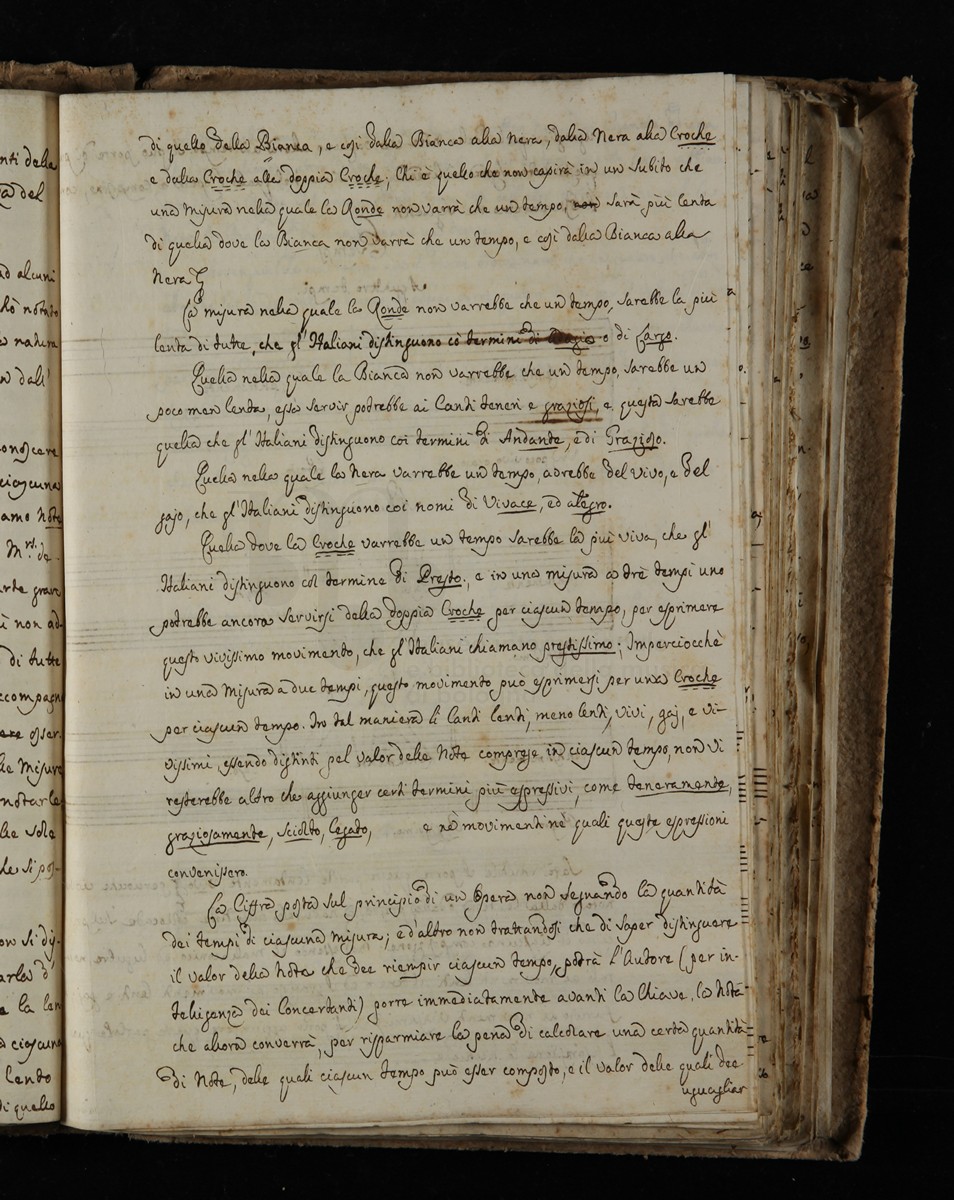 nti delle
a del
ad alcuni
hò notato
a natura
n dall'
onoscere
ciascuna
amo Note
M.rs de
arte gran
ì non ad-
di tutte
ccompagn
ere osser-
lle Misure
notarle
lle sole
le si pos-
on si di-
arla d'
a la len
a ciascuna
lento
di quello
di quello della Bianca, e così dalla Bianca alla Nera, dalla Nera alla Croche
e dalla Croche alle doppia Croche; Chi è quello che non capirà in un subito che
una Misura nella quale la Ronde non varrà che un tempo, non sarà più lenta
di quella dove la Bianca non varrà che un tempo, e così dalla Bianca alla
Nera
La misura nella quale la Ronde non varrebbe che un tempo, sarebbe la più
lenta di tutte, che gl'Italiani distinguono cò termini di Adagio o di Largo.
Quella nella quale la Bianca non varrebbe che un tempo, sarebbe un
poco men lenta, essa servir potrebbe ai Canti teneri e graziosi, e questa sarebbe
quella che gl'Italiani distinguono coi termini di Andante, e di Grazioso.
Quella nella quale la Nera varrebbe un tempo, avrebbe del vivo, e del
gajo, che gl'Italiani distinguono coi nomi di Vivace, ed allegro.
Quella dove la Croche varrebbe un tempo sarebbe la più viva, che gl'
Italiani distinguono col termine di Presto; e in una misura a trè tempi uno
potrebbe ancora servirsi della doppia Croche per ciascun tempo, per esprimere
questo vivissimo movimento, che gl'Italiani chiamano prestissimo; Imperciocchè
in una Misura a due tempi, questo movimento può esprimersi per una Croche
per ciascun tempo. In tal maniera li Canti lenti, meno lenti, vivi, gaj, e vi-
vissimi, essendo distinti pel valor delle Note comprese in ciascun tempo, non vi
resterebbe altro che aggiunger certi termini più espressivi, come teneramente,
graziosamente, sciolto, legato, e nè movimenti nè quali queste espressioni
convenissero.
La Ciffra posta sul principio di un Opera non segnando la quantità
dei tempi di ciascuna misura; e d'altro non trattandosi che di saper distinguere
il valor della Nota che dee riempir ciascun tempo, potrà l'Autore (per in-
telligenza dei Concertanti) porre immediatamente avanti la Chiave, la Nota
che allora converrà, per risparmiare la pena di calcolare una certa quantità
di Note, delle quali ciascun tempo può esser composto, e il valor delle quali dee
uguagliar